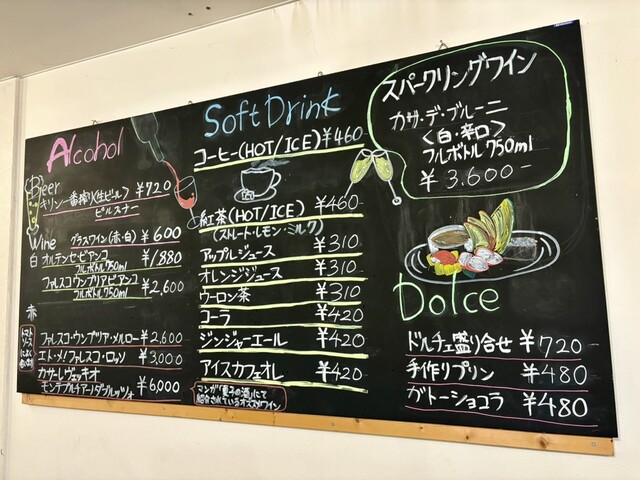 Alcohol
Beer
キリン一番搾り(生ビール) ¥720
ピルスナー
Wine
グラスワイン(赤・白) ¥600
白 オルテンセ・ビアンコ ¥1,880
フルボトル750ml
ファレスコ・ウンブリアビアンコ ¥2,600
フルボトル750ml
赤
トマトソースによく合います
ファレスコ・ウンブリア・メルロー ¥2,600
エト・メ!ファレスコ・ロッソ ¥3,000
カサーレヴェッキオ
モンテプルチアーノダブルッツォ ¥6,000
マンガ「神の雫」にて
紹介されているオススメワイン
Soft Drink
コーヒー(HOT/ICE) ¥460
紅茶(HOT/ICE) ¥460
(ストレート・レモン・ミルク)
アップルジュース ¥310
オレンジジュース ¥310
ウーロン茶 ¥310
コーラ ¥420
ジンジャーエール ¥420
アイスカフェオレ ¥420
スパークリングワイン
カサ・デ・ブルーニ
<白・辛口>
フルボトル750ml
¥3,600-
Dolce
ドルチェ盛り合せ ¥720
手作りプリン ¥480
ガトーショコラ ¥480